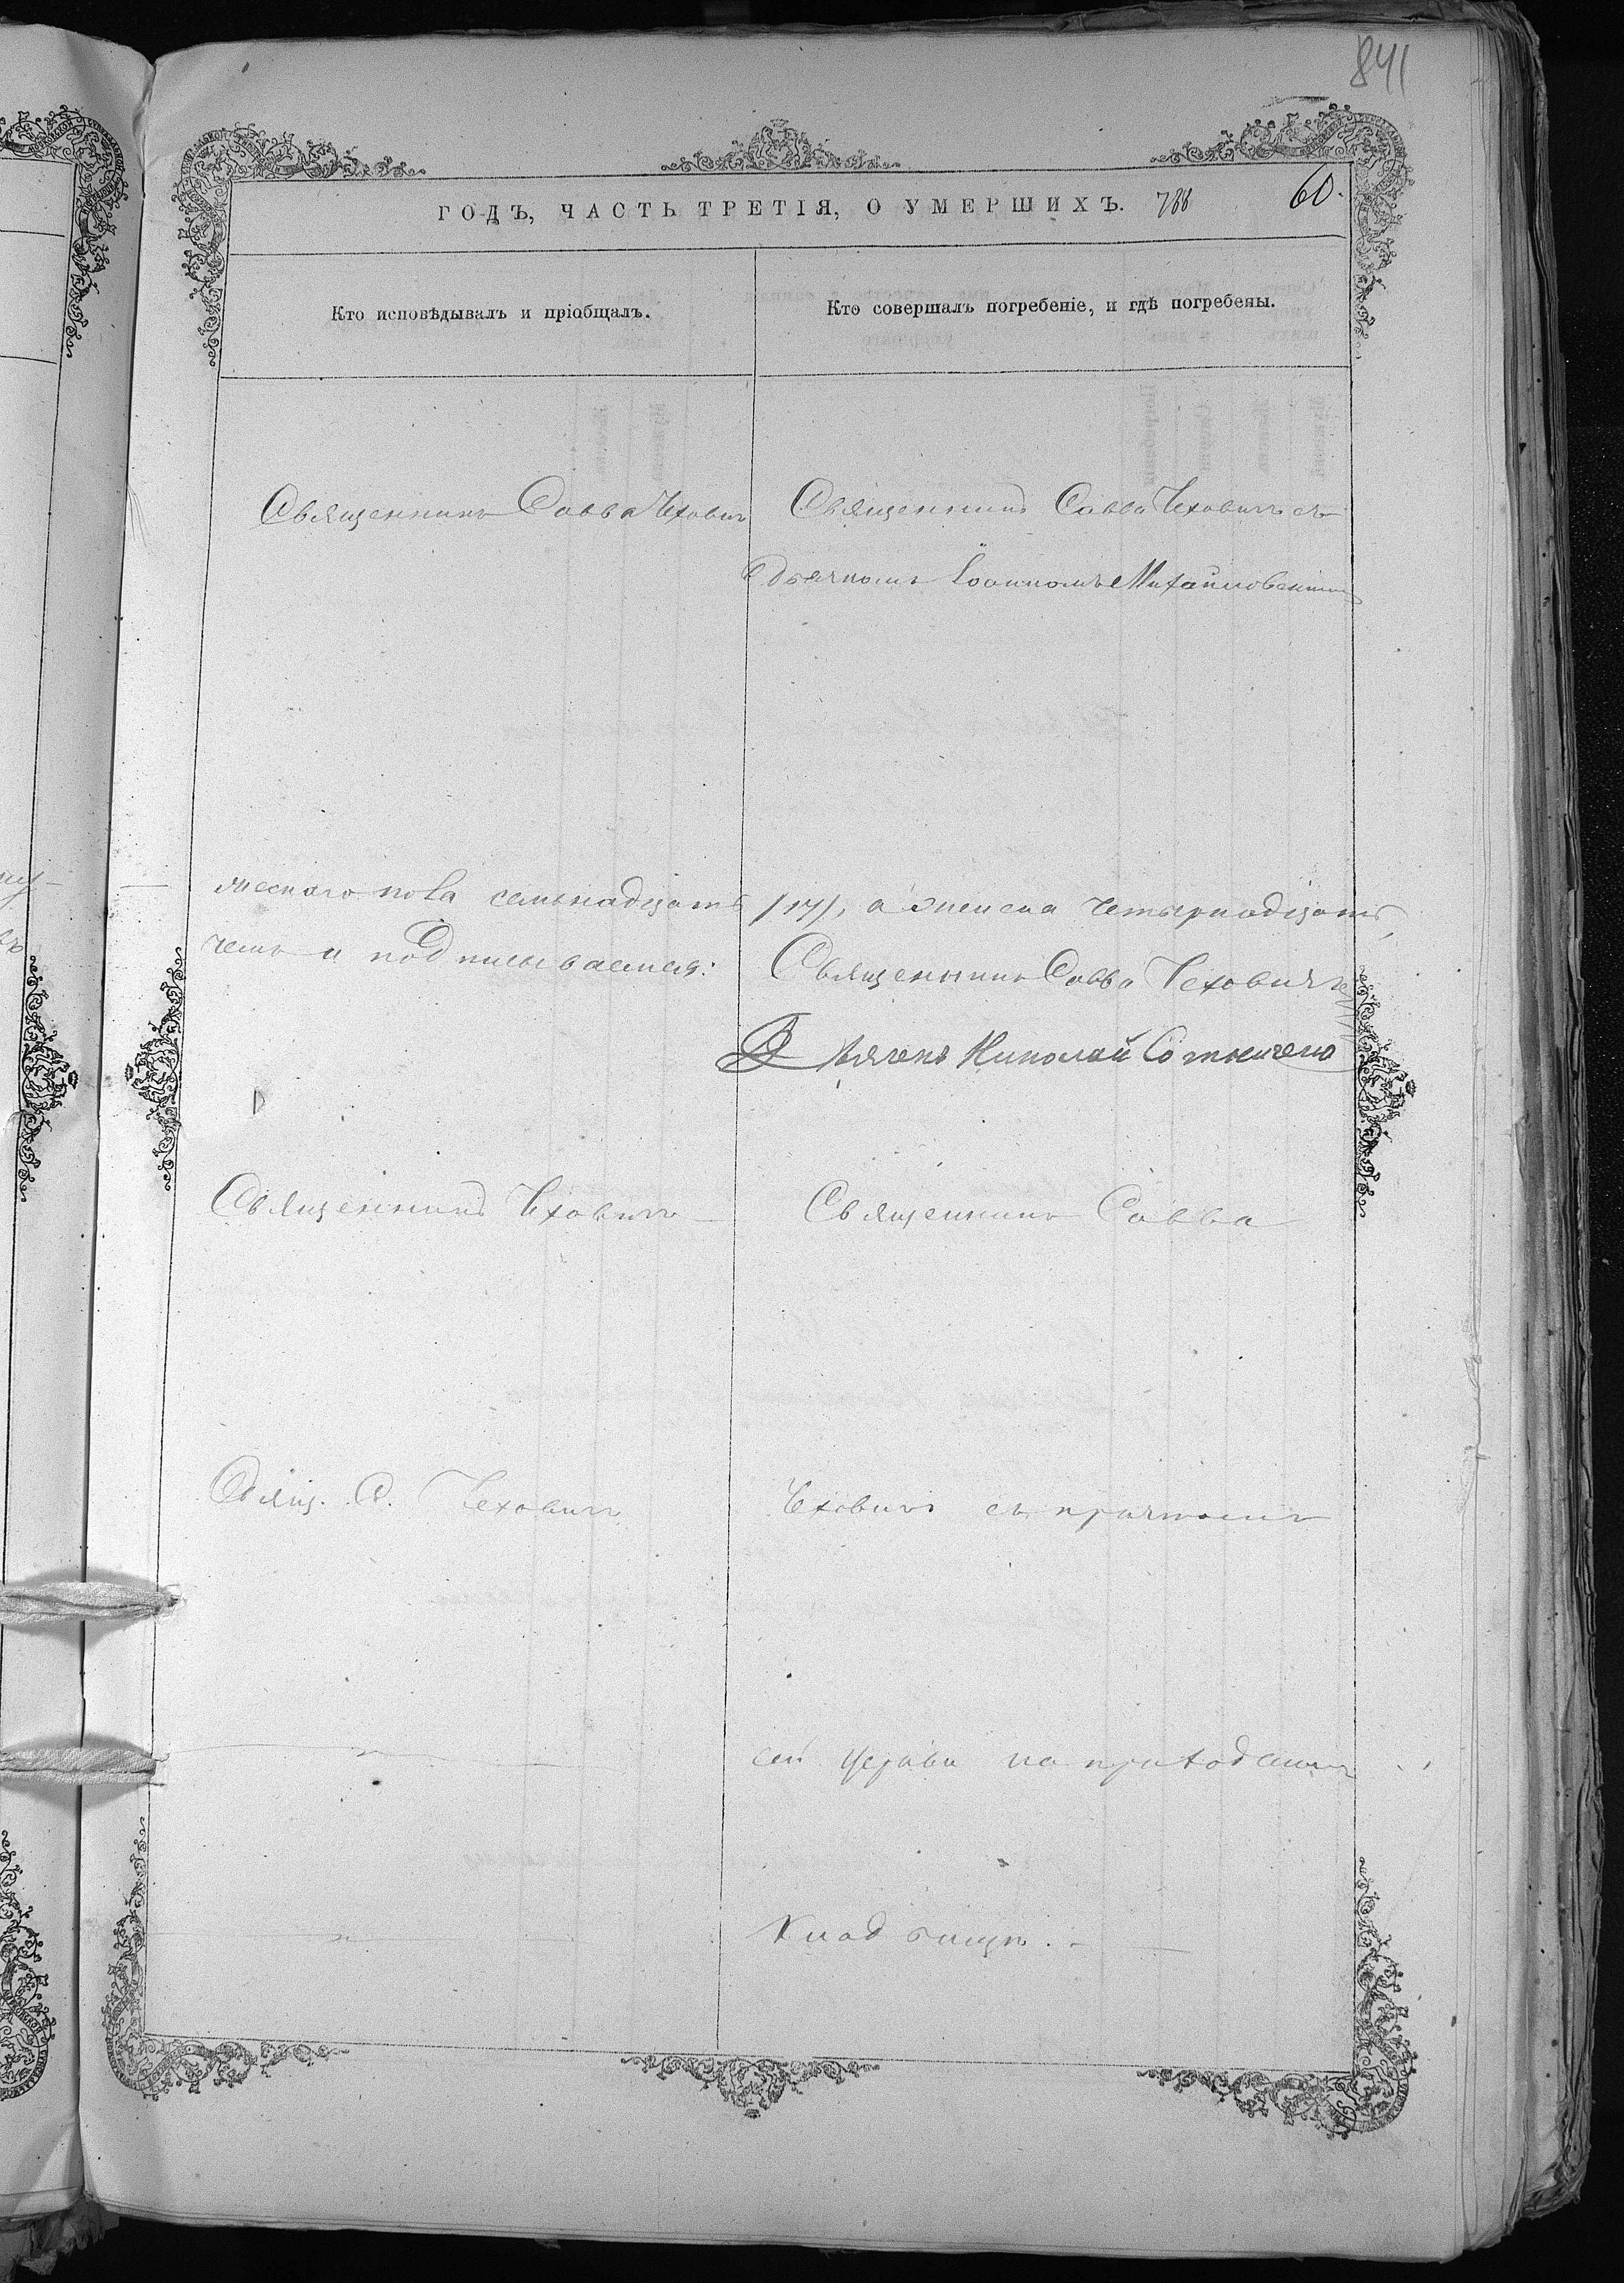 841
ГОДЪ, ЧАСТЬ ТРЕТІЯ, О УМЕРШИХЪ. 788 60.
Кто исповѣдывалъ и пріобщалъ.
Кто совершалъ погребеніе, и гдѣ погребены.
Священникъ Савва Чеховичъ
Священникъ Савва Чеховичъ съ
дьячкомъ Іоанномъ Михайловскимъ
мескаго пола семьнадцать /17/, а женска четырнадцать,
чемъ и подписываемся:
Священникъ Савва Чеховичъ
Дьячекъ Николай
Священникъ Чеховичъ
Священникъ Савва
Свящ. С. Чеховичъ
Чеховичъ съ причтомъ
сей церкви на приходскомъ
кладбищѣ.